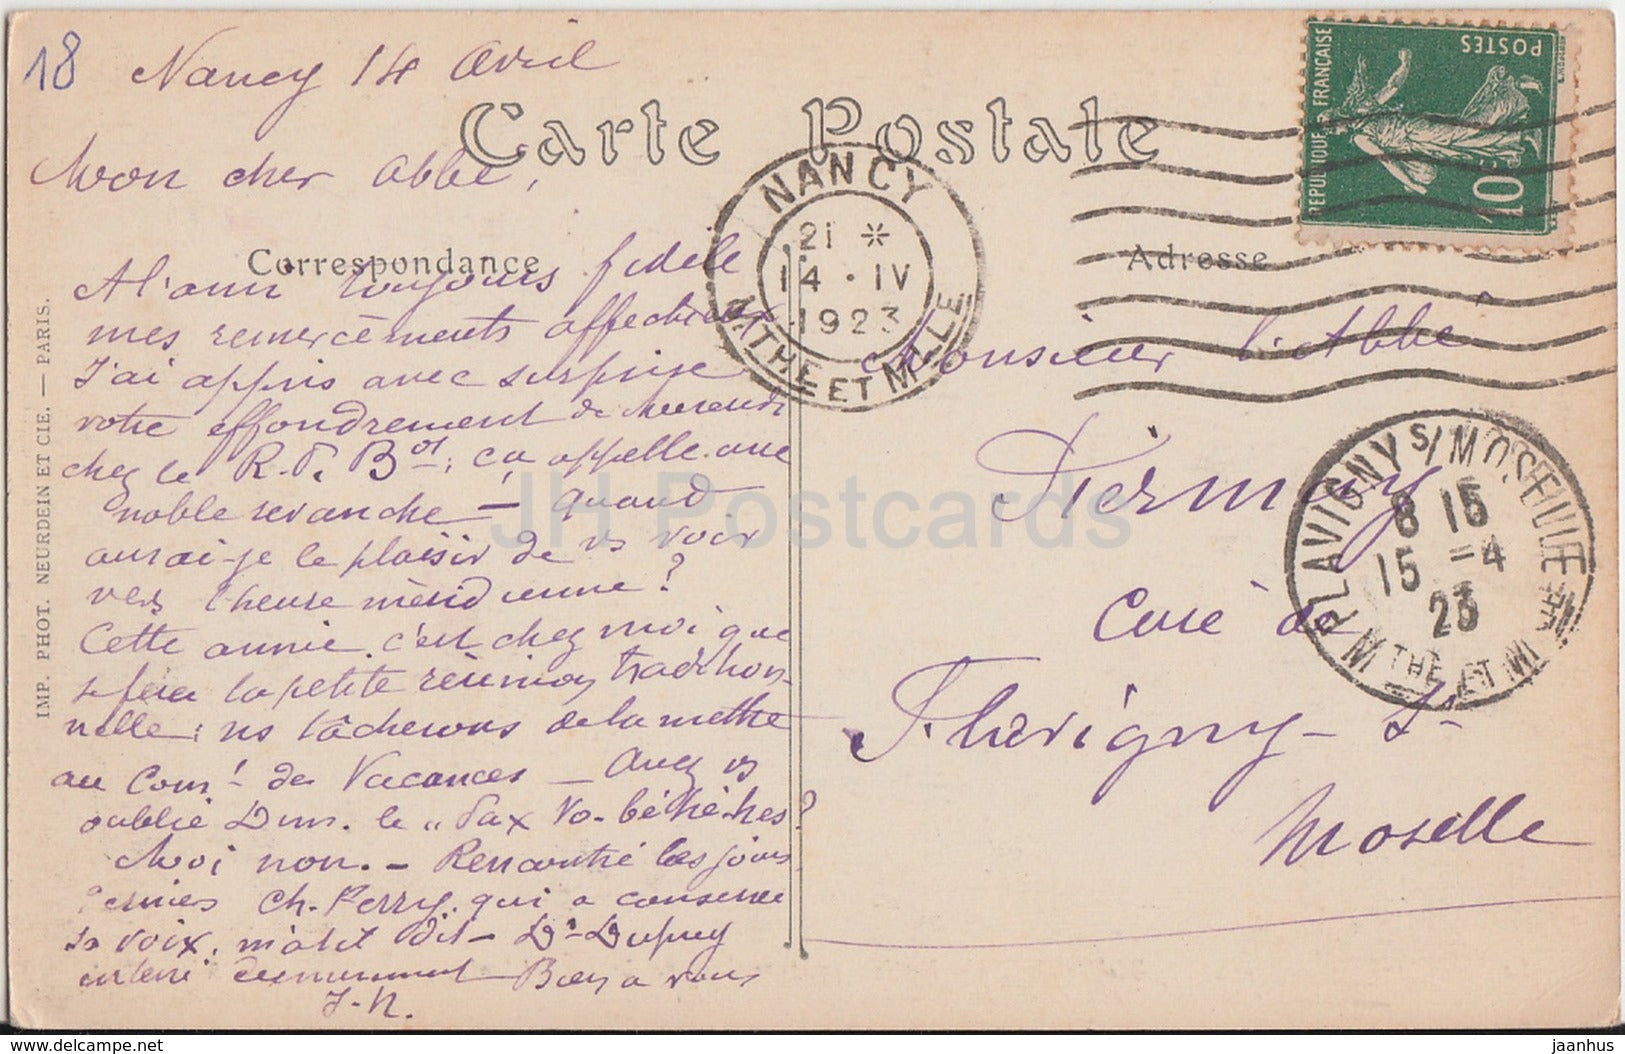 18
Nancy 14 Avril
Carte Postale
Mon cher Abbé,
Correspondance
A l'ami toujours fidèle
mes remercèments affectueux
J'ai appris avec surprise
votre effondrement de
chez le R. P. B; ça appelle une
noble revanche — quand
aurai-je le plaisir de vs voir
vers l'heure méridienne?
Cette année c'est chez moi que
se fera la petite réunion tradition-
nelle; ns tâcherons de la mettre
au Com.t des Vacances — Avez vs
oublié le "Pax Vo-bé
Moi non. — Rencontré ces jours
derniers Ch. Ferry, qui a conservé
sa voix, m'a-t-il dit — Dr Dupuy
enterré — Bien à vous
J-N.
IMP. PHOT. NEURDEIN ET CIE. — PARIS.
NANCY
21 *
14 · IV
1923
MTHE ET MLLE
REPUBLIQUE FRANÇAISE
POSTES
10c
Adresse
Monsieur l'Abbé
Piermay
Curé de
Flavigny-s
Moselle
FLAVIGNY S/MOSELLE
8 15
15 -4
23
MTHE ET M
JH Postcards
delcampe.net
jaanhus